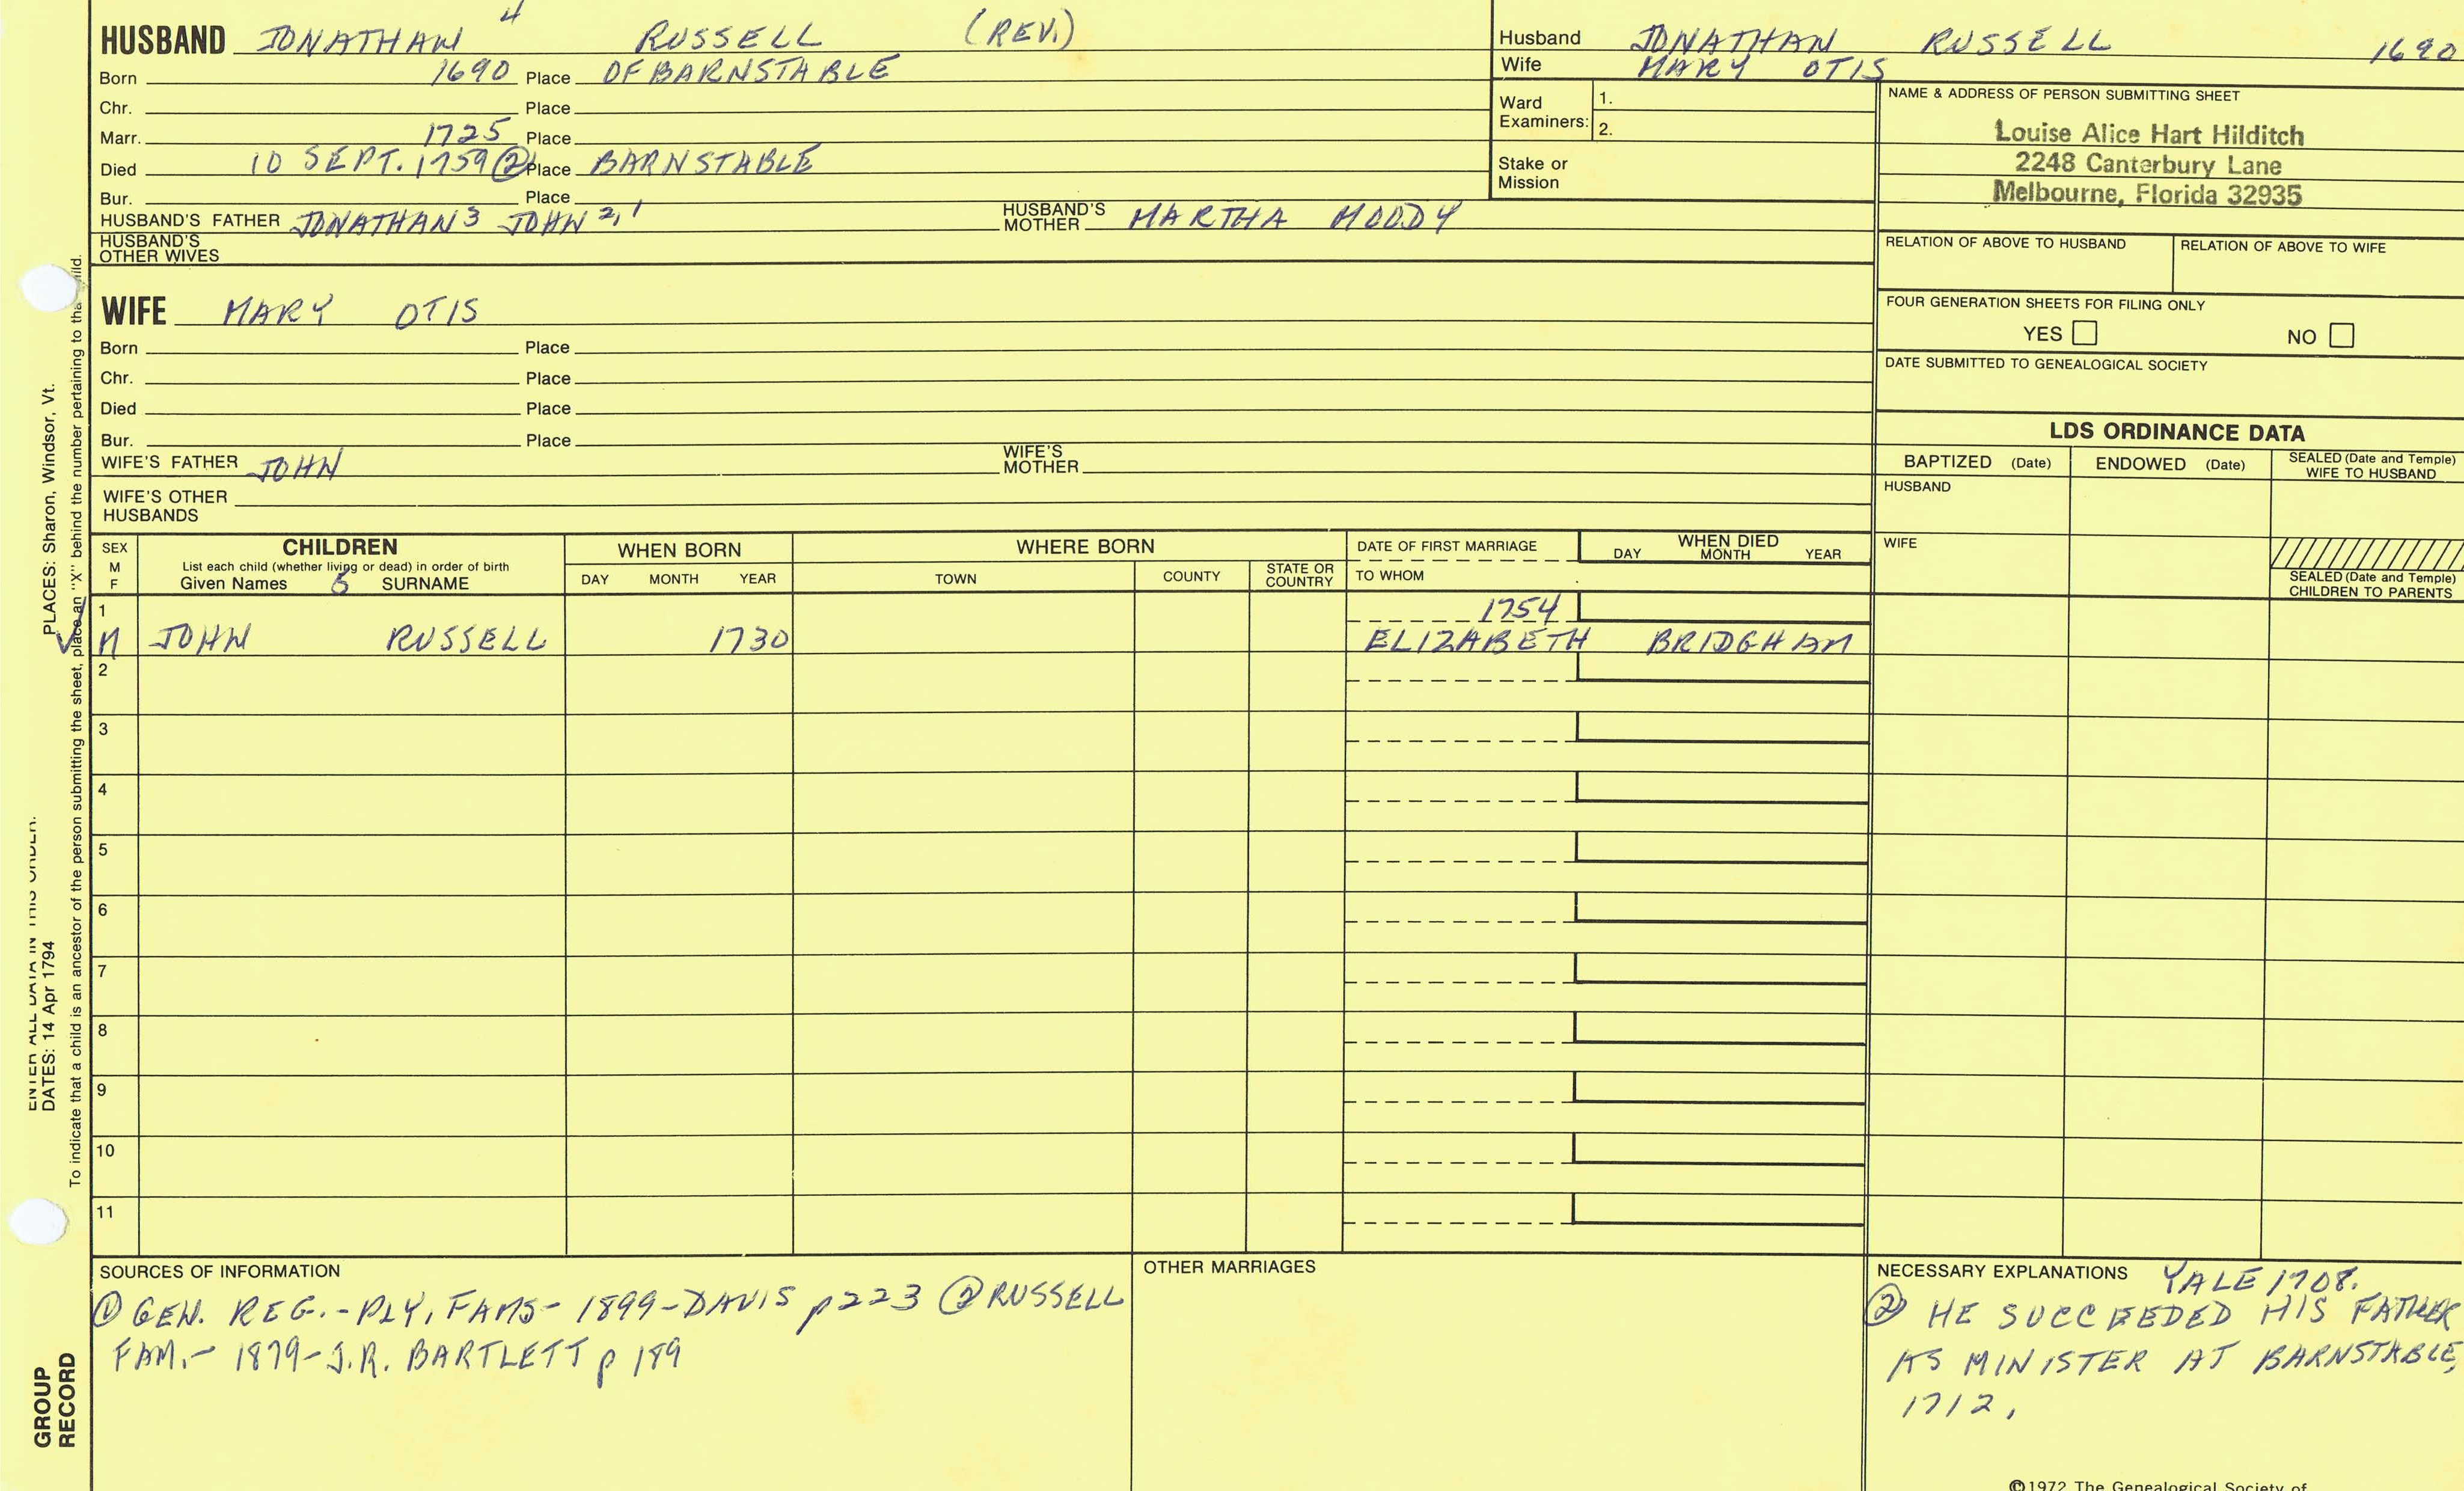 HUSBAND JONATHAN 4 RUSSELL (REV.)
Born 1690 Place OF BARNSTABLE
Chr. Place
Marr. 1725 Place
Died 10 SEPT. 1759 ② Place BARNSTABLE
Bur. Place
HUSBAND'S FATHER JONATHAN 3 JOHN 2, 1 HUSBAND'S MOTHER MARTHA MOODY
HUSBAND'S OTHER WIVES
Husband JONATHAN RUSSELL 1690
Wife MARY OTIS
Ward Examiners: 1.
2.
Stake or Mission
NAME & ADDRESS OF PERSON SUBMITTING SHEET
Louise Alice Hart Hilditch
2248 Canterbury Lane
Melbourne, Florida 32935
RELATION OF ABOVE TO HUSBAND RELATION OF ABOVE TO WIFE
FOUR GENERATION SHEETS FOR FILING ONLY
YES NO
DATE SUBMITTED TO GENEALOGICAL SOCIETY
WIFE MARY OTIS
Born Place
Chr. Place
Died Place
Bur. Place
WIFE'S FATHER JOHN WIFE'S MOTHER
WIFE'S OTHER HUSBANDS
LDS ORDINANCE DATA
BAPTIZED (Date) ENDOWED (Date) SEALED (Date and Temple) WIFE TO HUSBAND
HUSBAND
WIFE
SEALED (Date and Temple) CHILDREN TO PARENTS
SEX M F
CHILDREN
List each child (whether living or dead) in order of birth
Given Names 5 SURNAME
WHEN BORN
DAY MONTH YEAR
WHERE BORN
TOWN COUNTY STATE OR COUNTRY
DATE OF FIRST MARRIAGE
TO WHOM
WHEN DIED
DAY MONTH YEAR
1 1754
M JOHN RUSSELL 1730 ELIZABETH BRIDGHAM
2
3
4
5
6
7
8
9
10
11
SOURCES OF INFORMATION
① GEN. REG. - PLY. FAMS - 1899 - DAVIS p 223 ② RUSSELL
FAM. - 1879 - J.R. BARTLETT p 189
OTHER MARRIAGES
NECESSARY EXPLANATIONS YALE 1708.
② HE SUCCEEDED HIS FATHER
AS MINISTER AT BARNSTABLE,
1712.
©1972 The Genealogical Society of
PLACES: Sharon, Windsor, Vt.
ENTER ALL DATA IN THIS ORDER:
DATES: 14 Apr 1794
To indicate that a child is an ancestor of the person submitting the sheet, place an "X" behind the number pertaining to that child.
GROUP
RECORD